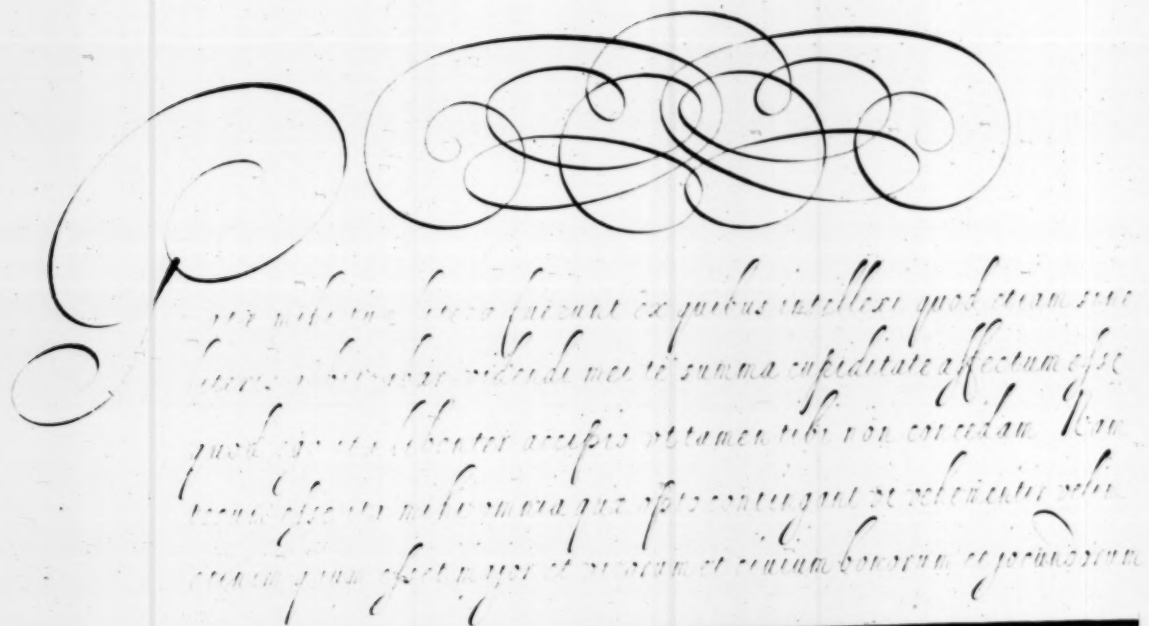 mihi tuæ literæ fuerunt ex quibus intellexi quod etiam sine
literis arbitrabar videndi mei te summa cupiditate affectum esse
quod ego ita libenter accipio ut tamen tibi non concedam Nam
tecum esse ita mihi omnia quæ opto contingant ut vehementer velim
etenim quum esset major et virorum et civium bonorum et jocundorum